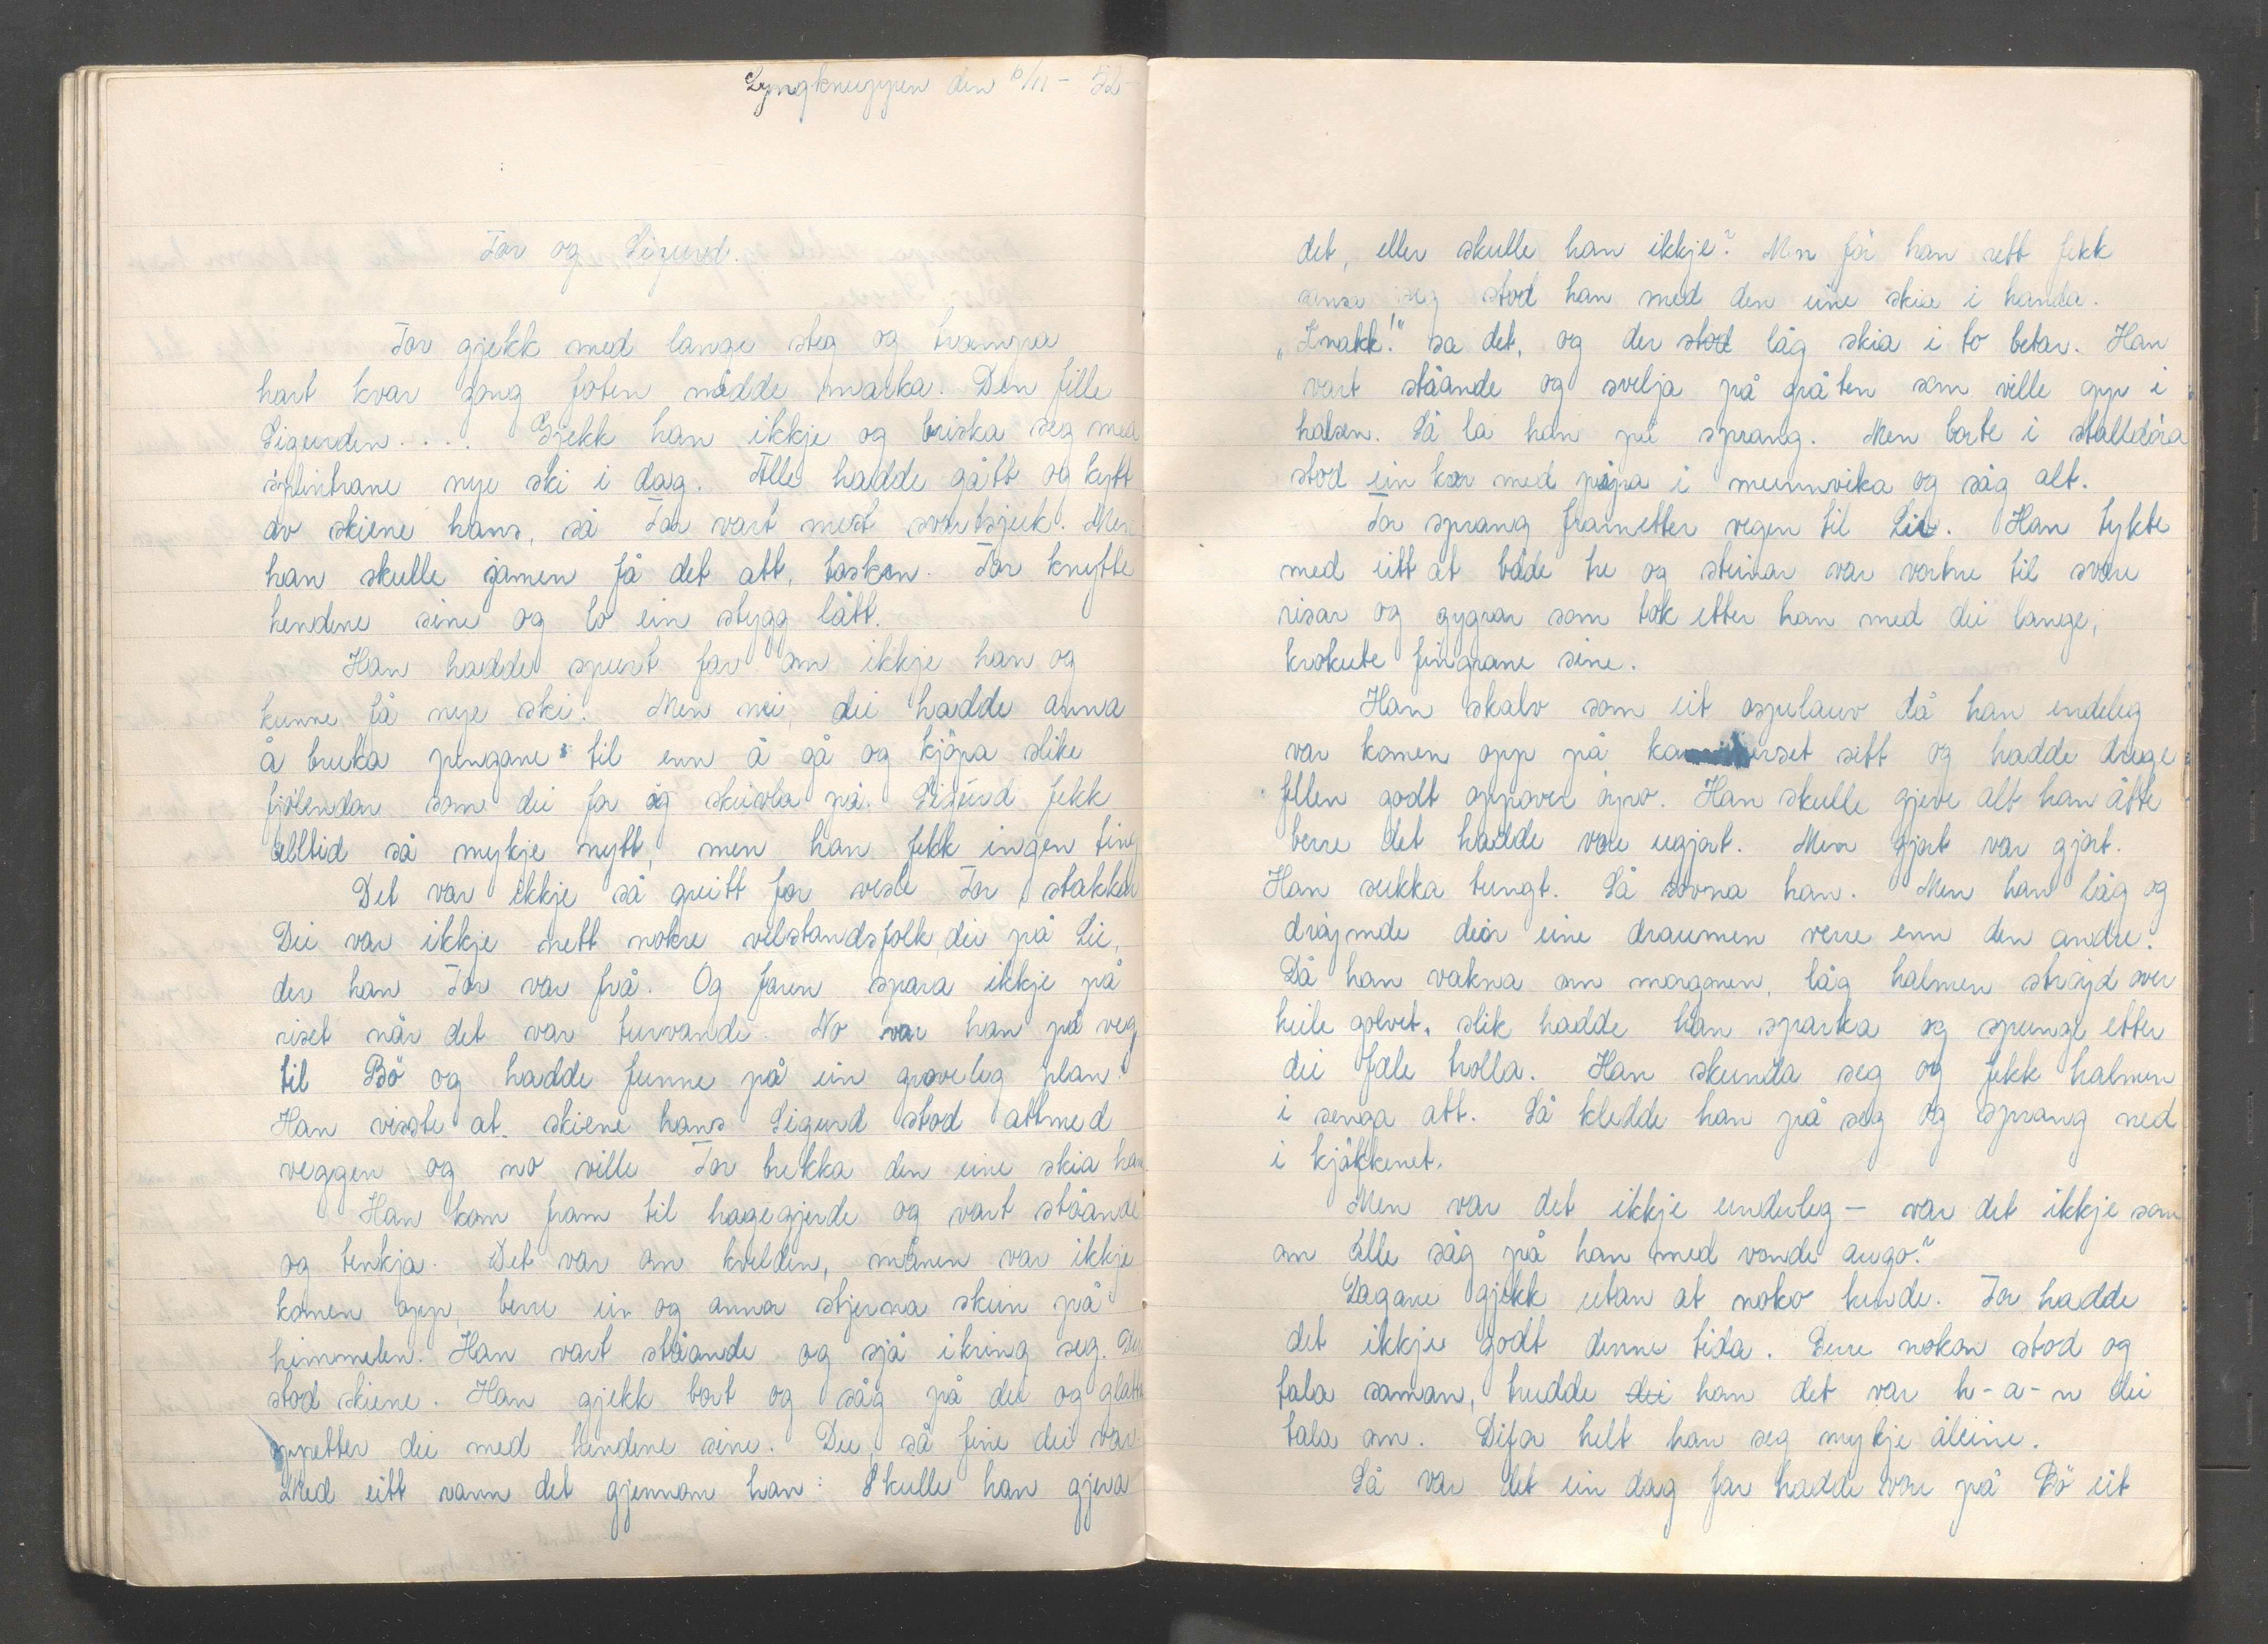 Lyngknuppen den 6/11 - 52
Tor og Sigurd.
Tor gjekk med lange steg og trampa
hart kvar gong foten nådde marka. Den fille
Sigurden.... Gjekk han ikkje og briska seg med
splintrane nye ski i dag. Alle hadde gått og kytt
av skiene hans, så Tor vart mest svartsjuk. Men
han skulle jamen få det att, tosken. Tor knytte
hendene sine og lo ein stygg lått.
Han hadde spurt far om ikkje han og
kunne få nye ski. Men nei, dei hadde anna
å bruka pengane til enn å gå og kjöpa slike
fjölendar som dei for og skeivla på. Sigurd fekk
alltid så mykje nytt, men han fekk ingen ting
Det var ikkje så greitt for vesle Tor, stakkar
Dei var ikkje nett nokre velstandsfolk, dei på Lie,
der han Tor var frå. Og faren spara ikkje på
riset når det var turvande. No var han på veg
til Bö og hadde funne på ein groveleg plan.
Han visste at skiene hans Sigurd stod attmed
veggen og no ville Tor brekka den eine skia hans
Han kom fram til hagegjerde og vart ståande
og tenkja. Det var om kvelden, månen var ikkje
komen opp, berre ein og annan stjerna skein på
himmelen. Han vart ståande og sjå ikring seg. Der
stod skiene. Han gjekk bort og såg på dei og glatta
oppetter dei med hendene sine. Du, så fine dei var
Med eitt rann det gjennom han: Skulle han gjera
det, eller skulle han ikkje? Men för han rett fekk
sansa seg stod han med den eine skia i handa.
„Knakk!" sa det, og der stod låg skia i to betar. Han
vart ståande og svelja på gråten som ville opp i
halsen. Så la han på sprang. Men borte i stalldöra
stod ein kar med pipa i munnvika og såg alt.
Tor sprang frametter vegen til Lie. Han tykte
med eitt at både tre og steinar var vortne til svære
risar og gygrar som tok etter han med dei lange,
krokute fingrane sine.
Han skalv som eit ospelauv då han endeleg
var komen opp på kammerset sitt og hadde drege
fellen godt oppover öyro. Han skulle gjeve alt han åtte
berre det hadde vore ugjort. Men gjort var gjort.
Han sukka tungt. Så sovna han. Men han låg og
dröymde den eine draumen verre enn den andre.
Då han vakna om morgonen, låg halmen ströydd over
heile golvet, slik hadde han sparka og spunge etter
dei fæle trolla. Han skunda seg og fekk halmen
i senga att. Så kledde han på seg og sprang ned
i kjökkenet.
Men var det ikkje underleg - var det ikkje som
om alle såg på han med vonde augo?
Dagane gjekk utan at noko hende. Tor hadde
det ikkje godt denne tida. Berre nokon stod og
tala saman, trudde dei han det var h-a-n dei
tala om. Difor helt han seg mykje åleine.
Så var det ein dag far hadde vore på Bö eit